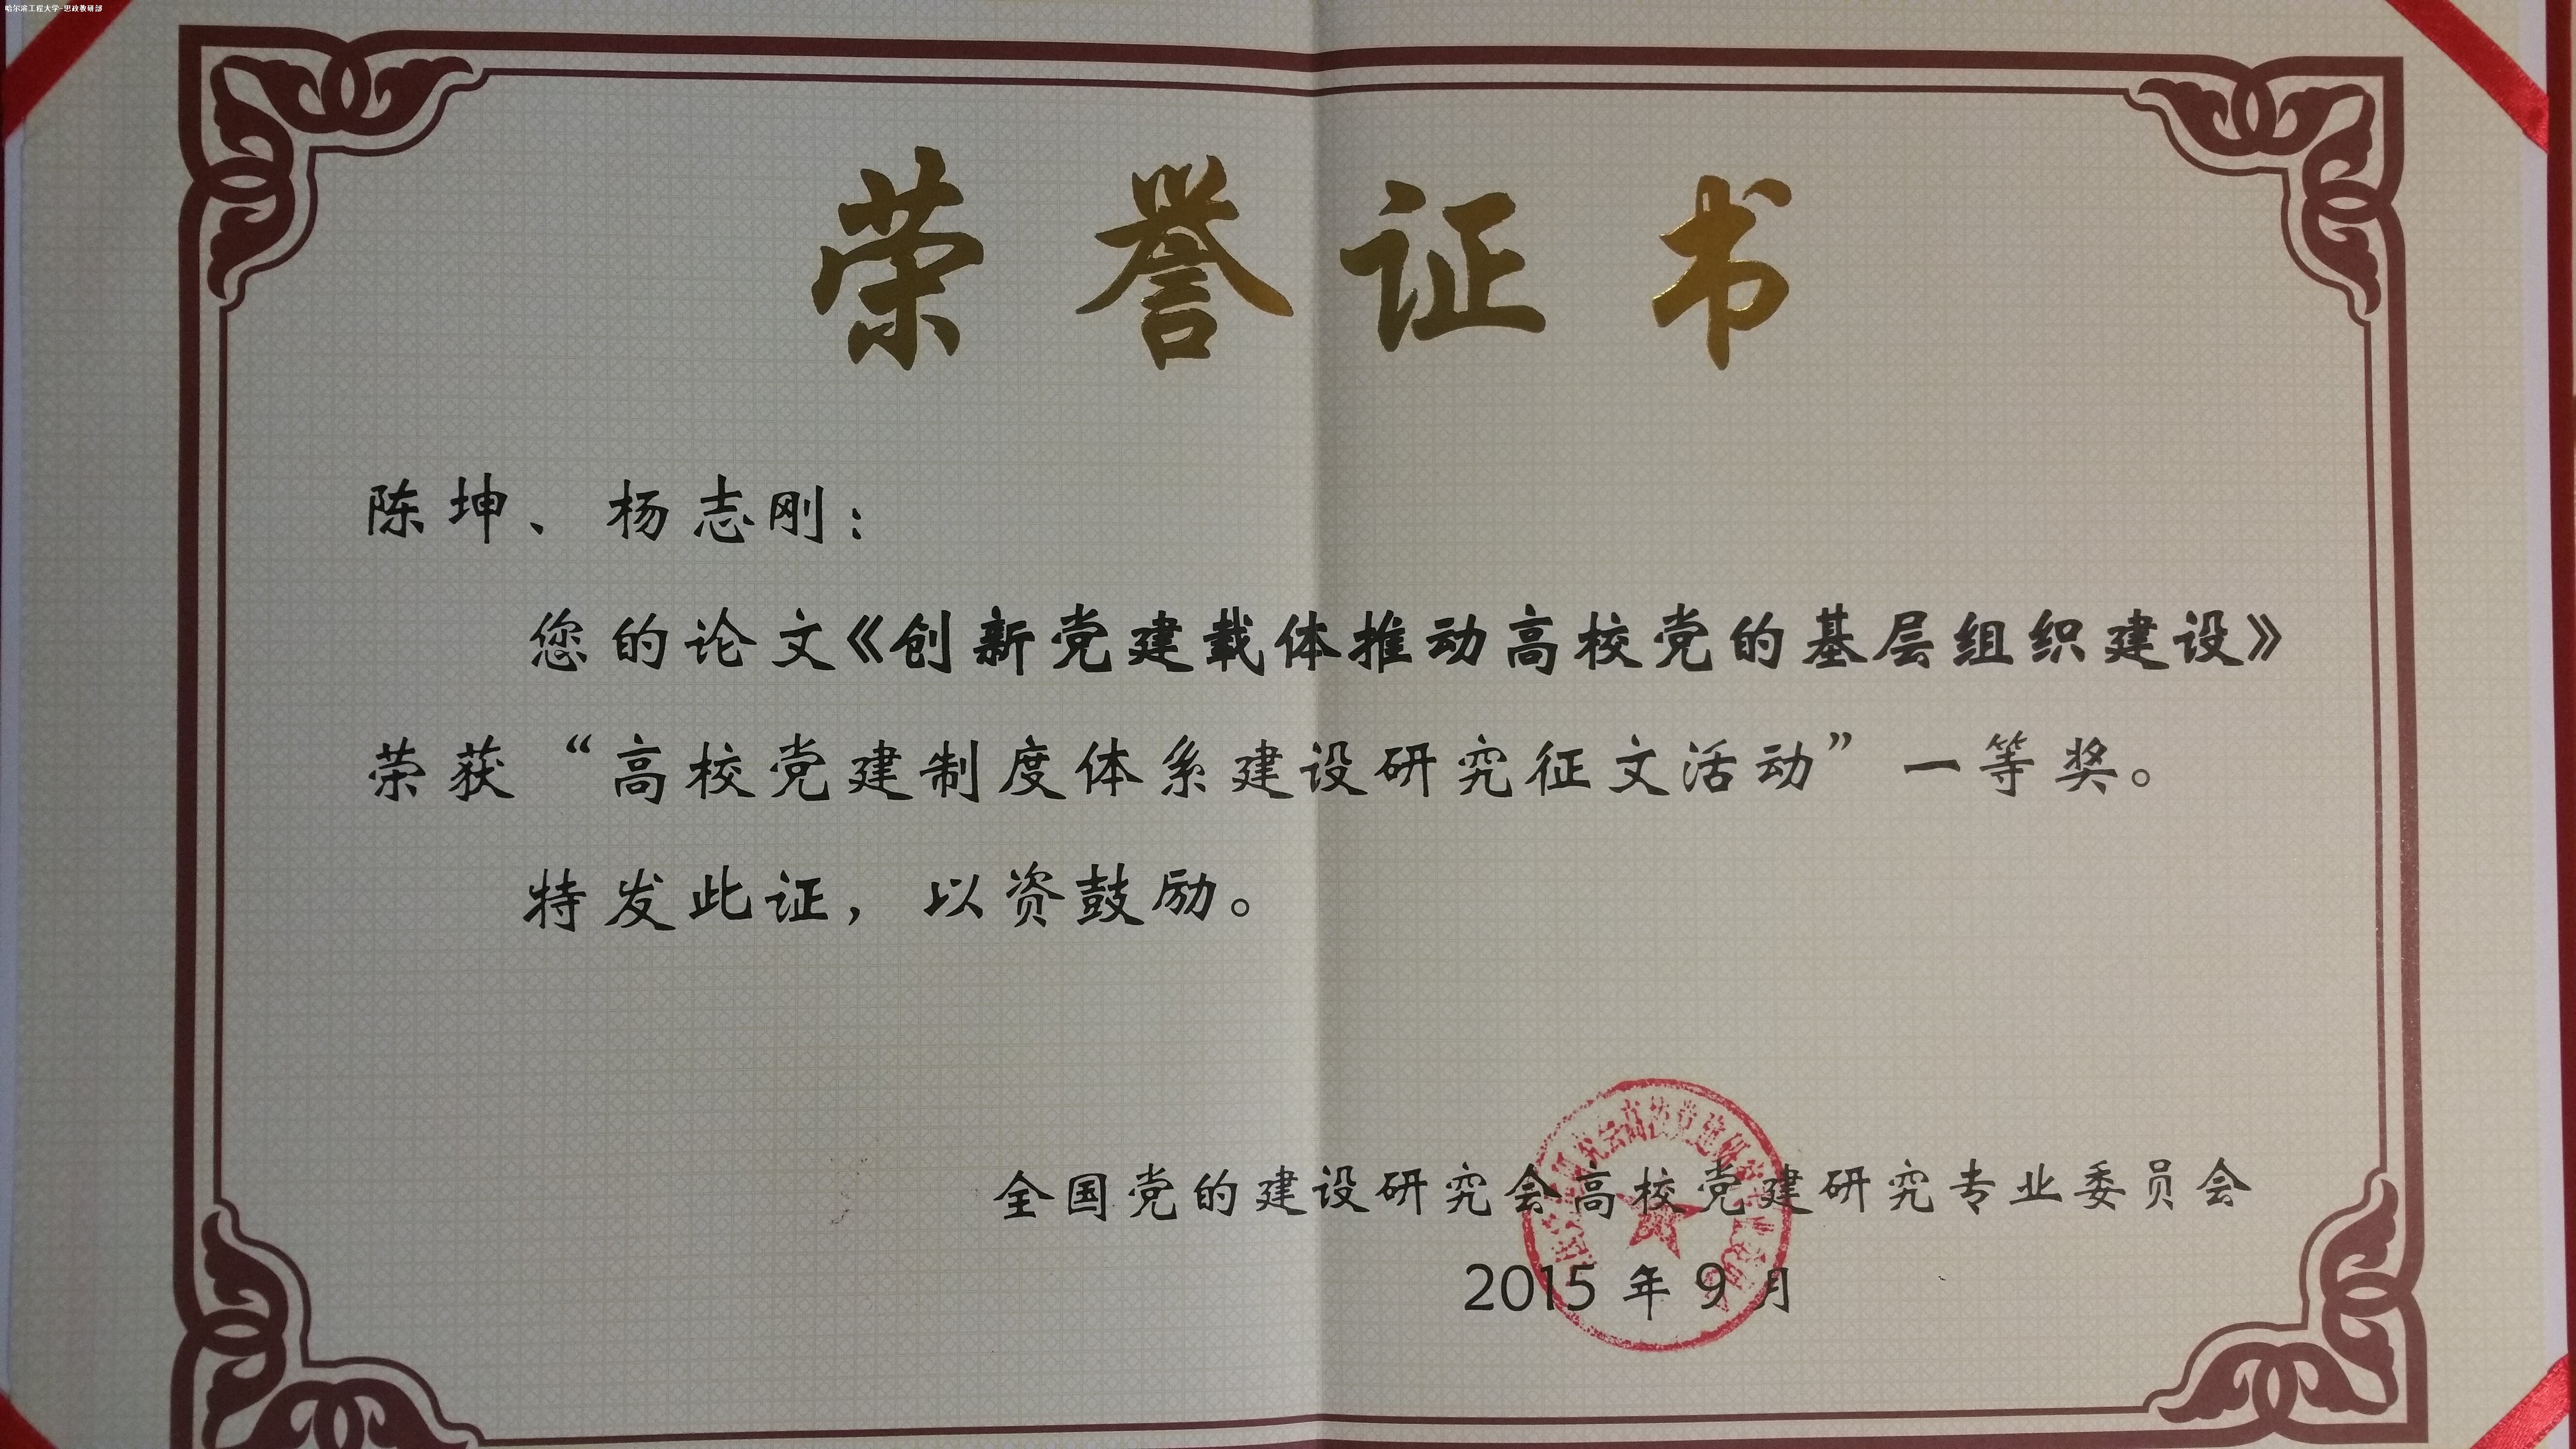 哈尔滨工程大学-思政教研部
荣誉证书
陈坤、杨志刚：
您的论文《创新党建载体推动高校党的基层组织建设》
荣获“高校党建制度体系建设研究征文活动” 一等奖。
特发此证，以资鼓励。
全国党的建设研究会高校党建研究专业委员会
2015 年 9 月